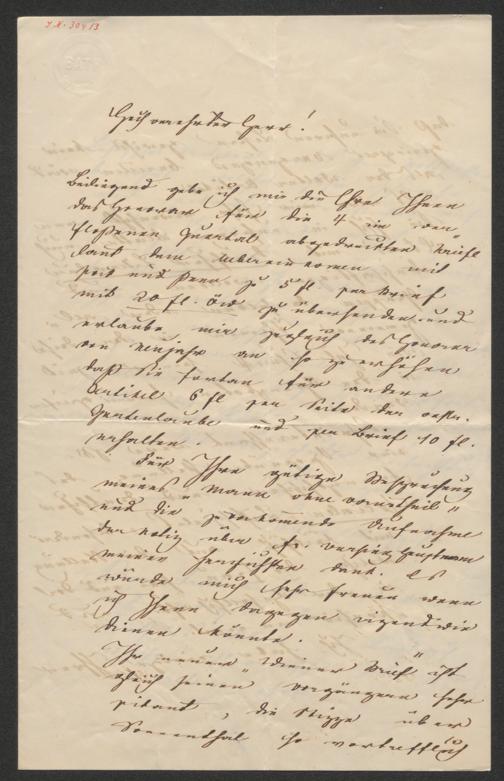 I.N. 304 13
Hochverehrter Herr!
Beiliegend gebe ich mir die Ehre Ihnen
das Honorar für die 4 im ver-
floßenen Quartal abgedruckten Briefe
laut dem Übereinkommen mit
zu 5 fl per Brief
mit 20 fl. öW zu übersenden und
erlaube mir zugleich das Honorar
von Neujahr an so zu erhöhen
daß Sie fortan für andere
Artikel 6 fl per Seite der oestr.
Gartenlaube und per Brief 10 fl.
erhalten.
Für Ihre gütige Besprechung
meines "Mann ohne Vorurtheil"
und die zuvorkommende Aufnahme
der Notiz über Fr.
meinen herzlichsten Dank. Es
würde mich sehr freuen wenn
ich Ihnen dagegen irgendwie
dienen könnte.
Ihr neuer "Wiener Brief" ist
gleich seinen Vorgängern sehr
pikant, die Skizze über
Sonnenthal so vortrefflich